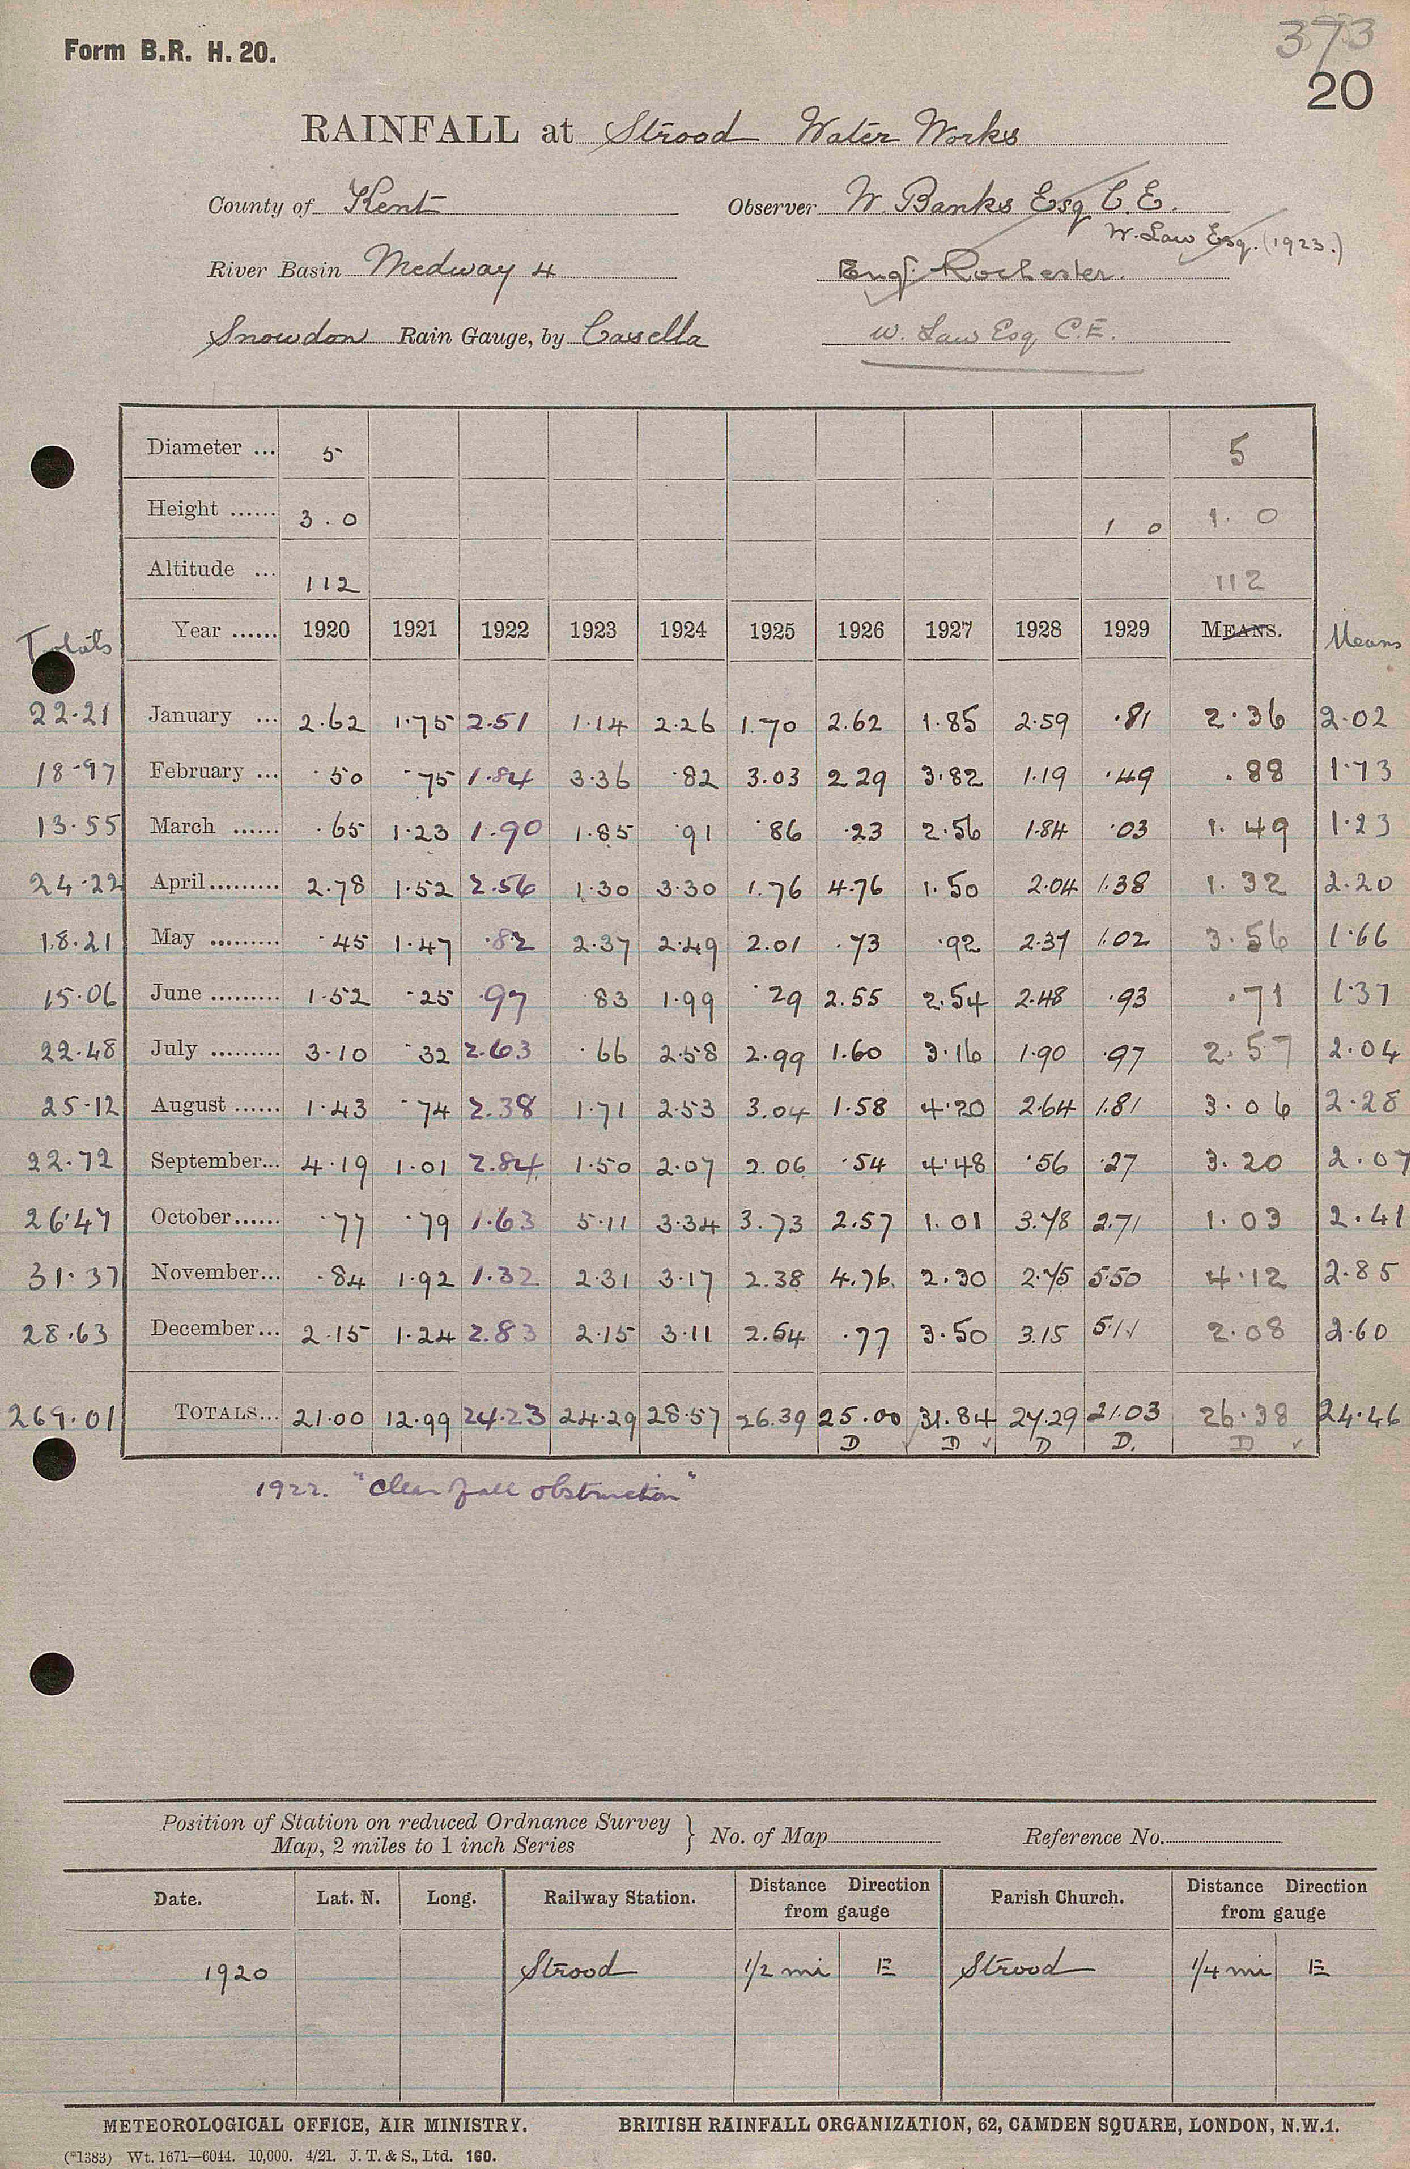 Form B.R. H. 20.
373
20
RAINFALL at Strood Water Works
County of Kent Observer W. Banks Esq C.E.
W. Law Esq. (1923.)
River Basin Medway 4 Engr. Rochester.
Snowdon Rain Gauge, by Casella W. Law Esq C.E.
Diameter ... 5 5
Height ...... 3.0 1 0 1.0
Altitude ... 112 112
Totals Year ...... 1920 1921 1922 1923 1924 1925 1926 1927 1928 1929 MEANS. Means
22.21 January ... 2.62 1.75 2.51 1.14 2.26 1.70 2.62 1.85 2.59 .81 2.36 2.02
18.97 February ... .50 .75 1.84 3.36 .82 3.03 2.29 3.82 1.19 .49 .88 1.73
13.55 March ...... .65 1.23 1.90 1.85 .91 .86 .23 2.56 1.84 .03 1.49 1.23
24.22 April ......... 2.78 1.52 2.56 1.30 3.30 1.76 4.76 1.50 2.04 1.38 1.32 2.20
18.21 May ......... .45 1.47 .82 2.37 2.49 2.01 .73 .92 2.37 1.02 3.56 1.66
15.06 June ......... 1.52 .25 .97 .83 1.99 .29 2.55 2.54 2.48 .93 .71 1.37
22.48 July ......... 3.10 .32 2.63 .66 2.58 2.99 1.60 3.16 1.90 .97 2.57 2.04
25.12 August ...... 1.43 .74 2.38 1.71 2.53 3.04 1.58 4.20 2.64 1.81 3.06 2.28
22.72 September... 4.19 1.01 2.84 1.50 2.07 2.06 .54 4.48 .56 .27 3.20 2.07
26.47 October ...... .77 .79 1.63 5.11 3.34 3.73 2.57 1.01 3.78 2.71 1.03 2.41
31.37 November... .84 1.92 1.32 2.31 3.17 2.38 4.76 2.30 2.75 5.50 4.12 2.85
28.63 December ... 2.15 1.24 2.83 2.15 3.11 2.54 .77 3.50 3.15 5.11 2.08 2.60
269.01 TOTALS... 21.00 12.99 24.23 24.29 28.57 26.39 25.00 31.84 27.29 21.03 26.38 24.46
D D D D. D
1922. "Clear fall obstruction"
Position of Station on reduced Ordnance Survey
Map, 2 miles to 1 inch Series } No. of Map Reference No.
Date. Lat. N. Long. Railway Station. Distance from gauge Direction Parish Church. Distance from gauge Direction
1920 Strood 1/2 mi E Strood 1/4 mi E
METEOROLOGICAL OFFICE, AIR MINISTRY. BRITISH RAINFALL ORGANIZATION, 62, CAMDEN SQUARE, LONDON, N.W.1.
(*1383) Wt. 1671—6044. 10,000. 4/21. J. T. & S., Ltd. 160.